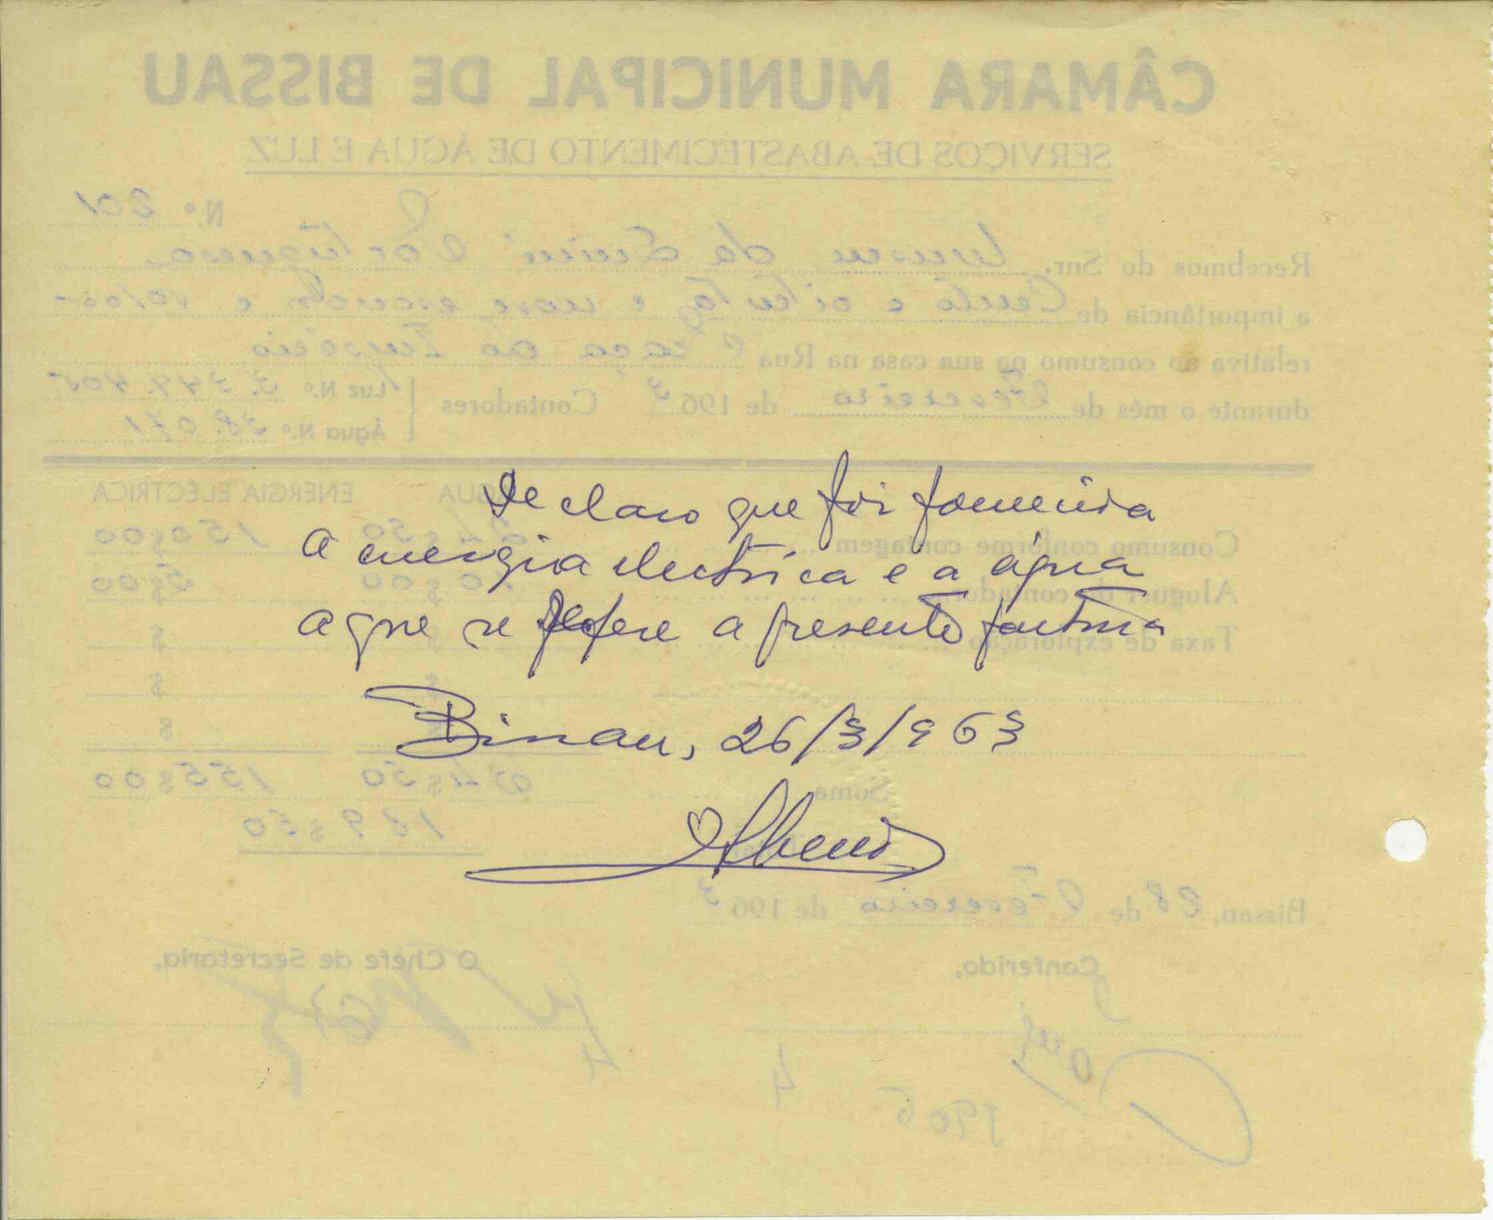 Declaro que foi fornecida
a energia electrica e a água
a que se refere a presente factura
Bissau, 26/3/963
CÂMARA MUNICIPAL DE BISSAU
SERVIÇOS DE ABASTECIMENTO DE ÁGUA E LUZ
N.º 201
Recebemos do Snr. Museu da Guiné Portuguesa
a importância de Cento e oitenta e nove escudos e 50/00
relativa ao consumo na sua casa na Rua Praça do Império
durante o mês de Fevereiro de 1963 Contadores Luz N.º
Água N.º 38.071
ÁGUA ENERGIA ELÉCTRICA
Consumo conforme contagem 24$50 150$00
Aluguer de contador 10$00 5$00
Taxa de exploração $ $
$ $
$ $
Soma 34$50 155$00
189$50
Bissau, 28 de Fevereiro de 1963
Conferido, O Chefe de Secretaria,